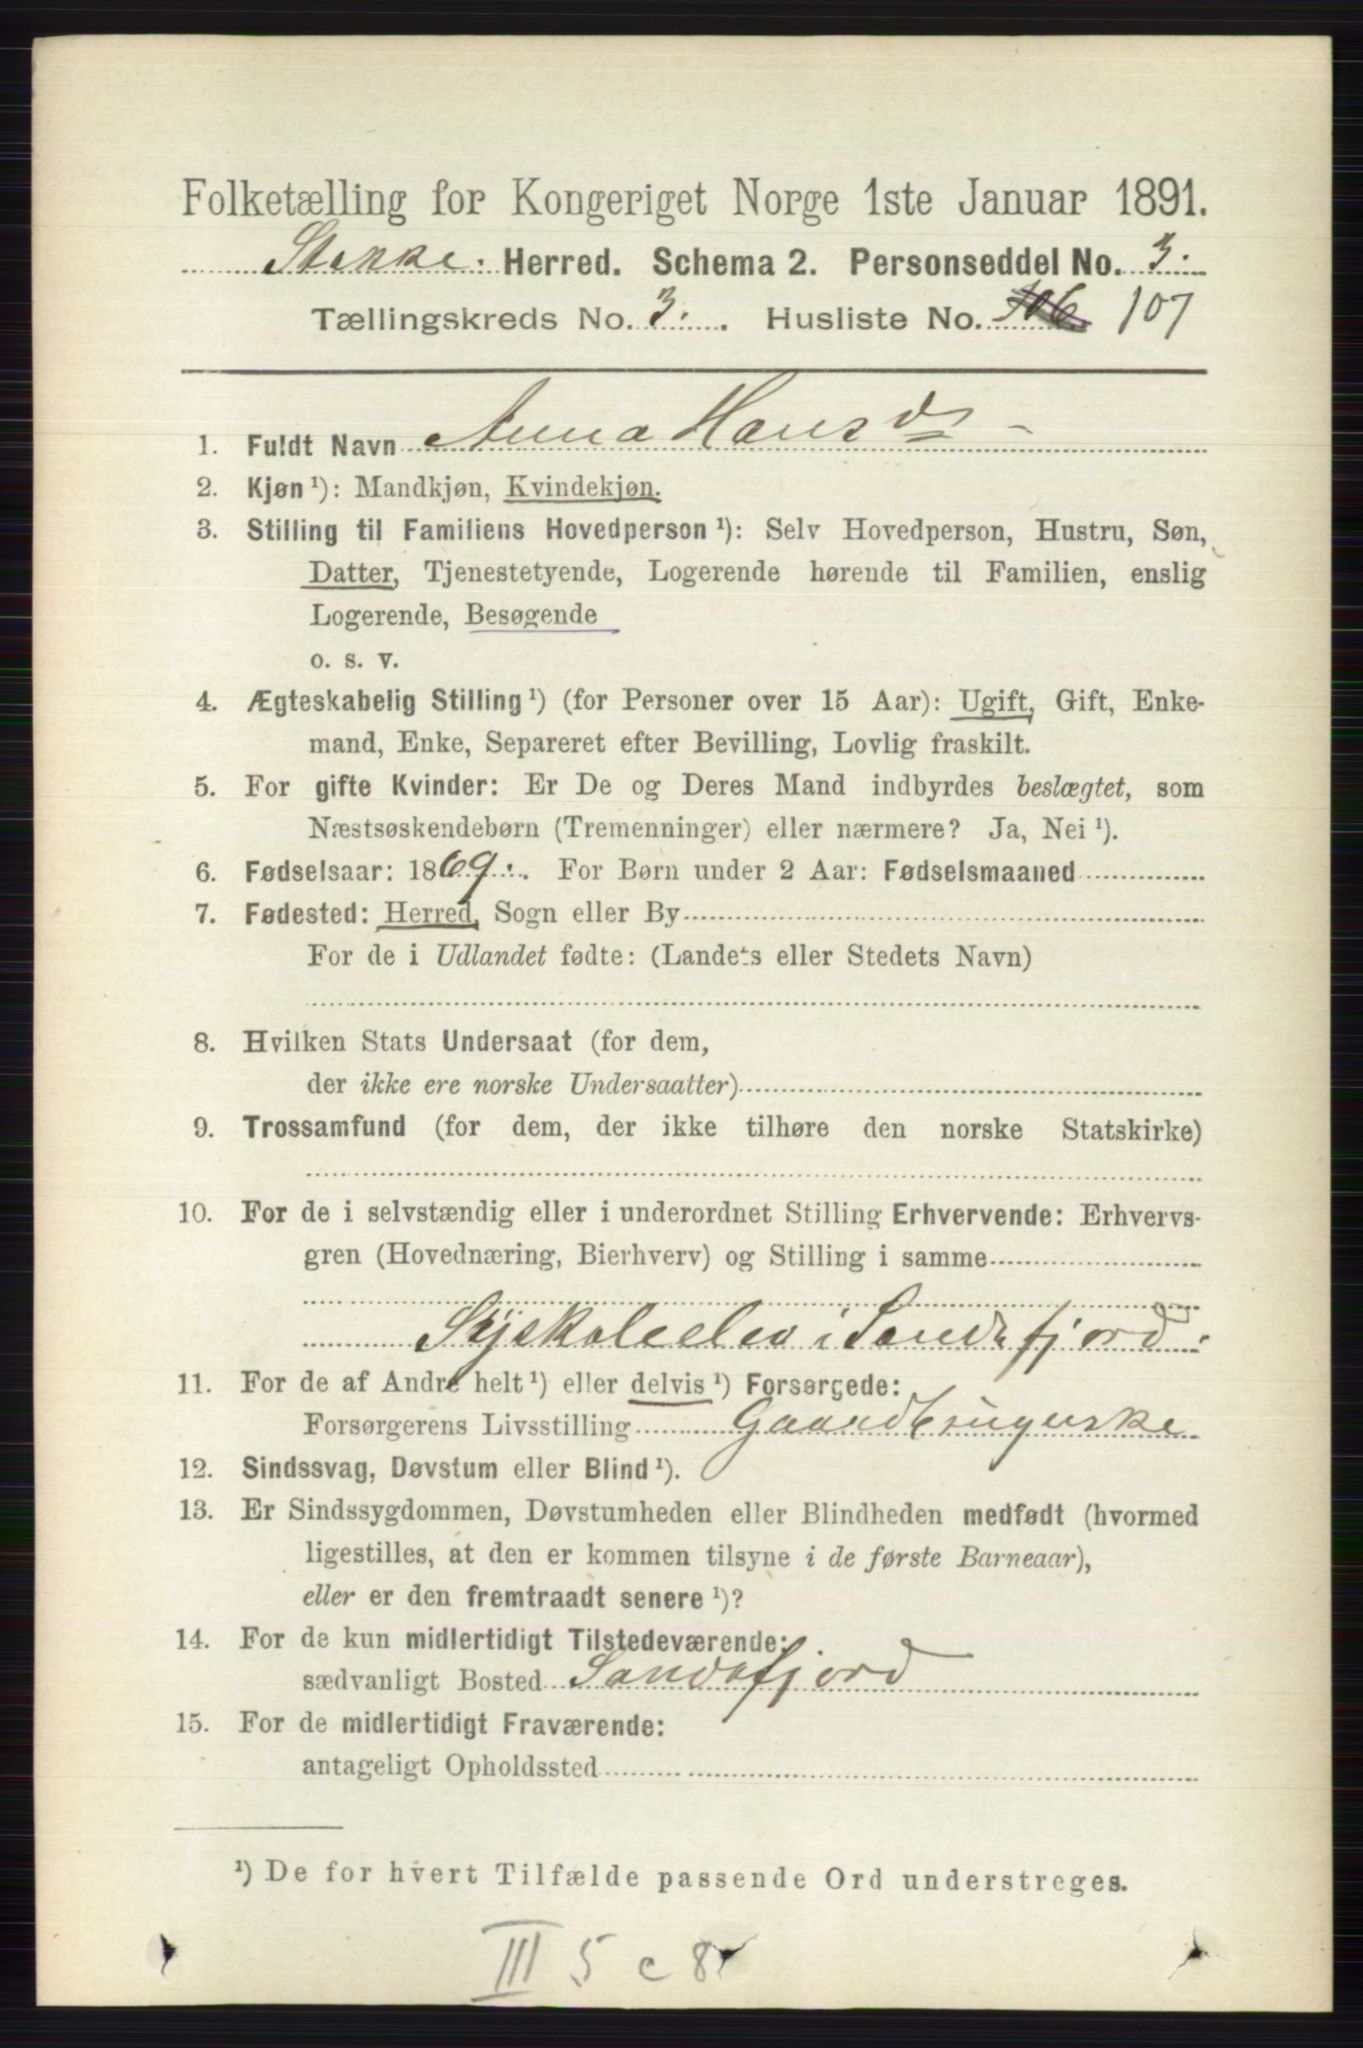 Folketælling for Kongeriget Norge 1ste Januar 1891.
Stokke. Herred. Schema 2. Personseddel No. 3.
Tællingskreds No. 3. Husliste No. 106. 107
1. Fuldt Navn Anna Hansd
2. Kjøn ¹): Mandkjøn, Kvindekjøn.
3. Stilling til Familiens Hovedperson ¹): Selv Hovedperson, Hustru, Søn,
Datter, Tjenestetyende, Logerende hørende til Familien, enslig
Logerende, Besøgende
o. s. v.
4. Ægteskabelig Stilling ¹) (for Personer over 15 Aar): Ugift, Gift, Enke-
mand, Enke, Separeret efter Bevilling, Lovlig fraskilt.
5. For gifte Kvinder: Er De og Deres Mand indbyrdes beslægtet, som
Næstsøskendebørn (Tremenninger) eller nærmere? Ja, Nei ¹).
6. Fødselsaar: 1869. For Børn under 2 Aar: Fødselsmaaned
7. Fødested: Herred, Sogn eller By
For de i Udlandet fødte: (Landets eller Stedets Navn)
8. Hvilken Stats Undersaat (for dem,
der ikke ere norske Undersaatter)
9. Trossamfund (for dem, der ikke tilhøre den norske Statskirke)
10. For de i selvstændig eller i underordnet Stilling Erhvervende: Erhvervs-
gren (Hovednæring, Bierhverv) og Stilling i samme
Syskoleelev i Sandefjord.
11. For de af Andre helt ¹) eller delvis ¹) Forsørgede:
Forsørgerens Livsstilling Gaardbrugerske
12. Sindssvag, Døvstum eller Blind ¹).
13. Er Sindssygdommen, Døvstumheden eller Blindheden medfødt (hvormed
ligestilles, at den er kommen tilsyne i de første Barneaar),
eller er den fremtraadt senere ¹)?
14. For de kun midlertidigt Tilstedeværende:
sædvanligt Bosted Sandefjord
15. For de midlertidigt Fraværende:
antageligt Opholdssted
¹) De for hvert Tilfælde passende Ord understreges.
III 5 c 8